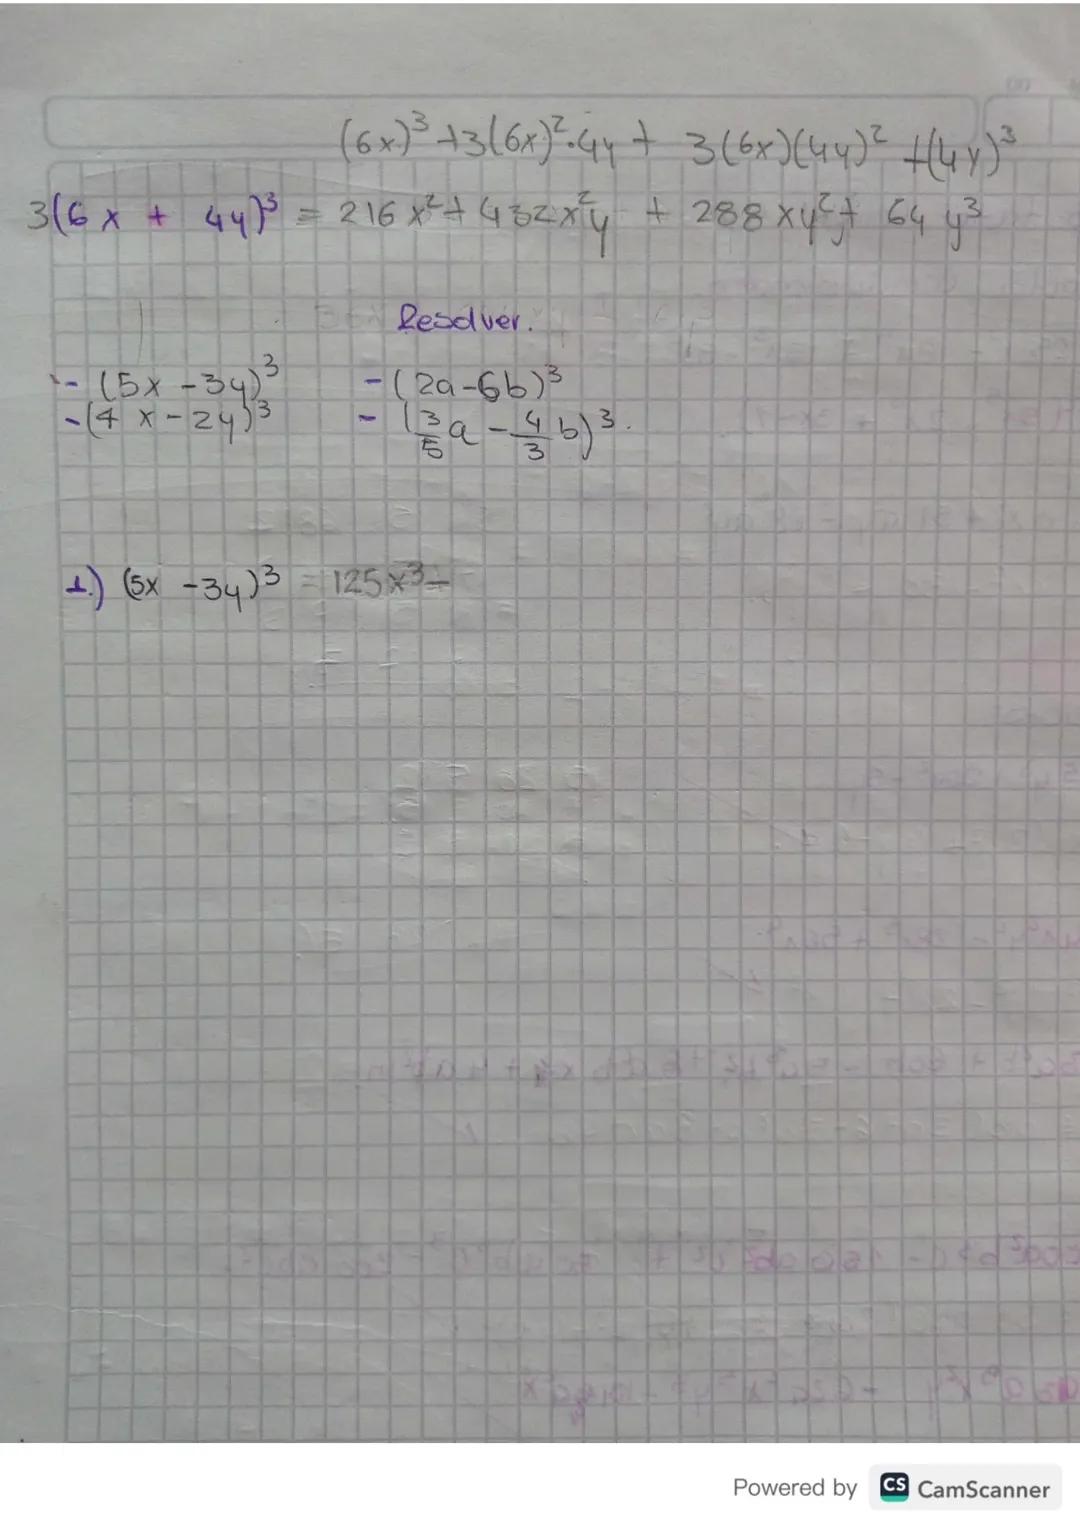 (6x)³ +3(6x)²·4y + 3(6x)(4y)² +(4y)³
3(6x + 4y)³ = 216x²+ 432x²y + 288xy²+ 64y³
Resolver.
- (5x -3y)³ - (2a-6b)³
- (4x-2y)³ - (3/5a - 4/3b)³.
1.) (5x -3y)³ = 125x³-
Powered by CS CamScanner